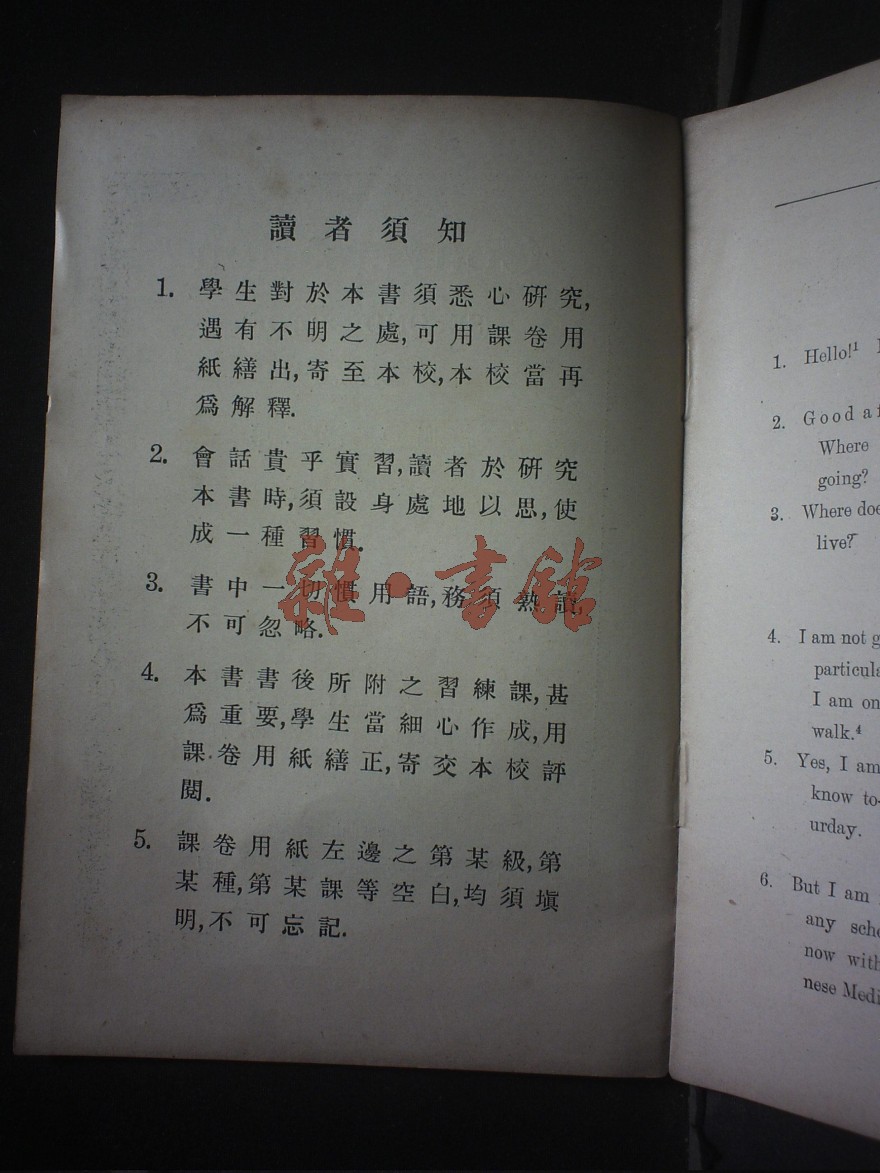 讀者須知
1. 學生對於本書須悉心研究,
遇有不明之處,可用課卷用
紙繕出,寄至本校,本校當再
爲解釋.
2. 會話貴乎實習,讀者於研究
本書時,須設身處地以思,使
成一種習慣.
3. 書中一切慣用語,務須熟讀,
不可忽略.
4. 本書書後所附之習練課,甚
爲重要,學生當細心作成,用
課卷用紙繕正,寄交本校評
閱.
5. 課卷用紙左邊之第某級,第
某種,第某課等空白,均須塡
明,不可忘記.
雜·書館
1. Hello!¹
2. Good
Where
going?
3. Where
live?
4. I am not
I am
walk.⁴
5. Yes, I am
know
urday.
6. But I am
any
now
nese